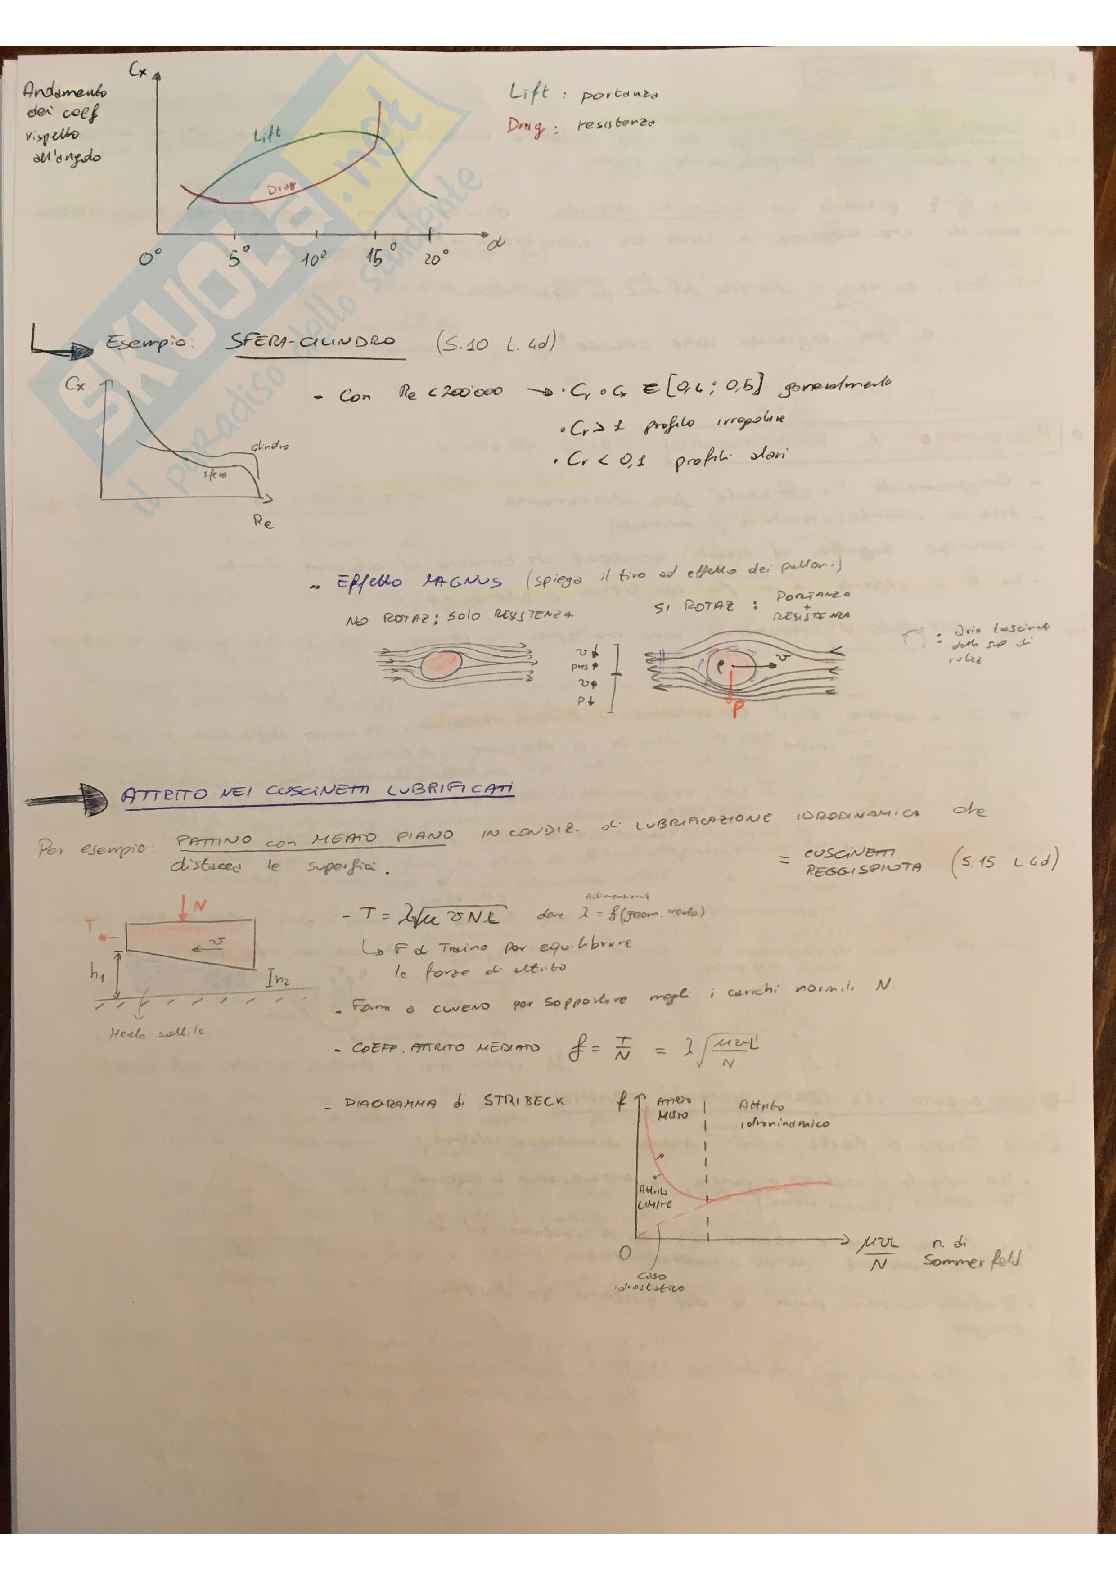 Cx
Andamento
dei coeff
rispetto
all'angolo
Lift : portanza
Drag : resistenza
Lift
Drag
0° 5° 10° 15° 20° α
SKUOLA.net
il paradiso dello studente
Esempio: SFERA-CILINDRO (S.10 L.4d)
Cx
cilindro
sfera
Re
- Con Re < 200'000 → · Cr o Cx ∈ [0,4 ; 0,5] generalmente
· Cr > 1 profilo irregolare
· Cr < 0,1 profili alari
- Effetto MAGNUS (spiega il tiro ad effetto dei palloni)
NO ROTAZ: SOLO RESISTENZA
SI ROTAZ : PORTANZA + RESISTENZA
v↓
pres↑
v↑
p↓
v
P
: aria trascinata
dalla sup di
ATTRITO NEI CUSCINETTI LUBRIFICATI
Per esempio: PATTINO con MEATO PIANO IN CONDIZ. di LUBRIFICAZIONE IDRODINAMICA che
distacca le superfici.
= CUSCINETTI
REGGISPINTA (S.15 L4d)
N
T
v
h1
h2
Meato sottile
- T = λ√μvNL dove λ = f(geom. meato)
Adimensionale
↳ F di Traino per equilibrare
le forze di attrito
- Forma a CUNEO per sopportare meglio i carichi normali N
- COEFF. ATTRITO MEDIATO f = T/N = λ√(μvL/N)
- DIAGRAMMA di STRIBECK
f
ATTRITO
MISTO
Attrito
idrodinamico
Attrito
LIMITE
0
Caso
idrostatico
μvL/N
n. di
Sommerfeld